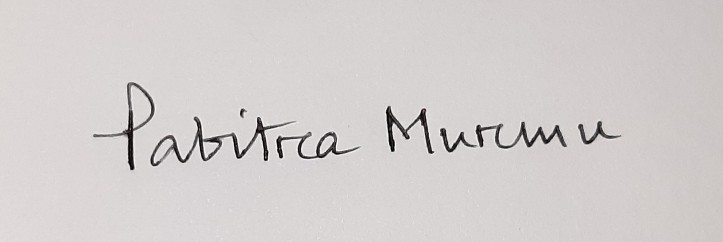 Pabitra Murmu